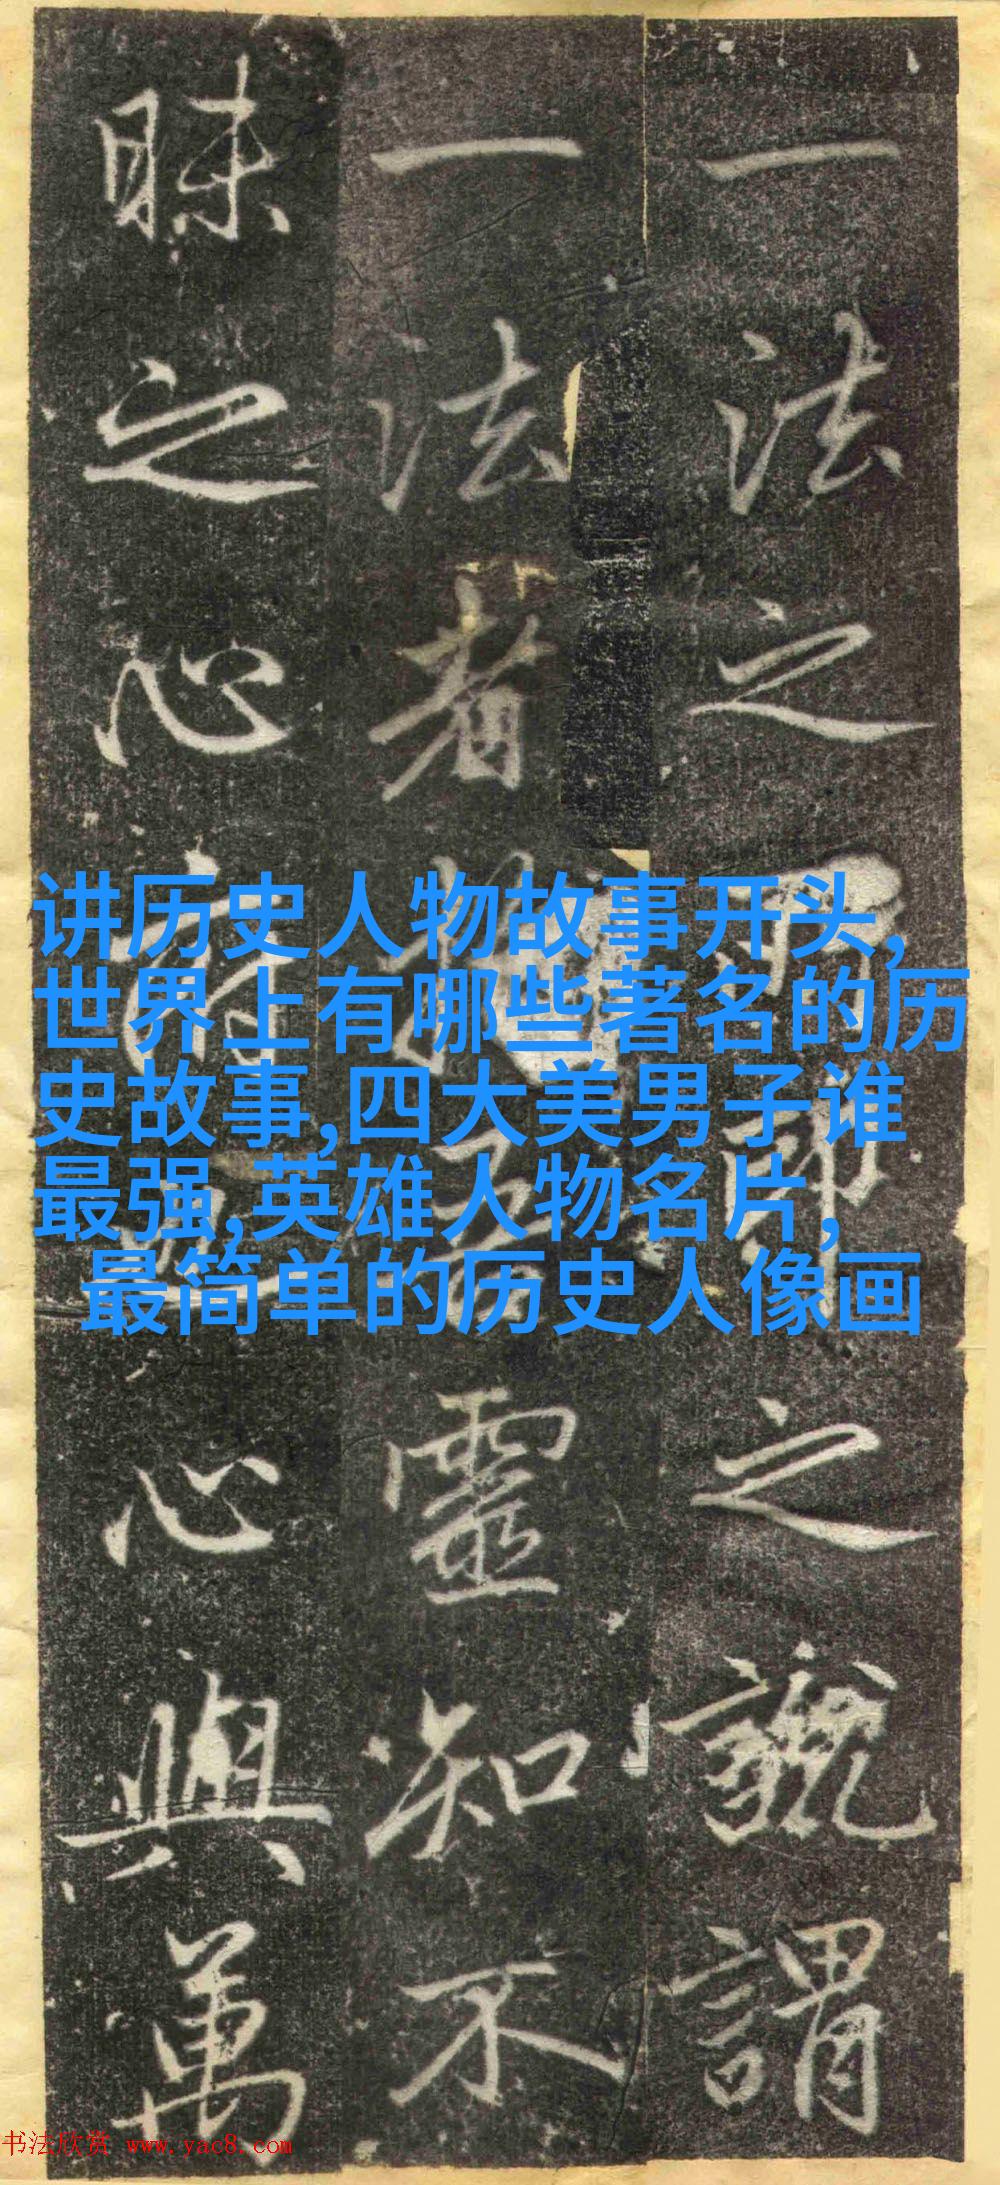 一法之之謂
一法者靈知不
昧之心心與萬
讲历史人物故事开头,
世界上有哪些著名的历
史故事,四大美男子谁
最强,英雄人物名片,
最简单的历史人像画
书法欣赏 www.yac8.com